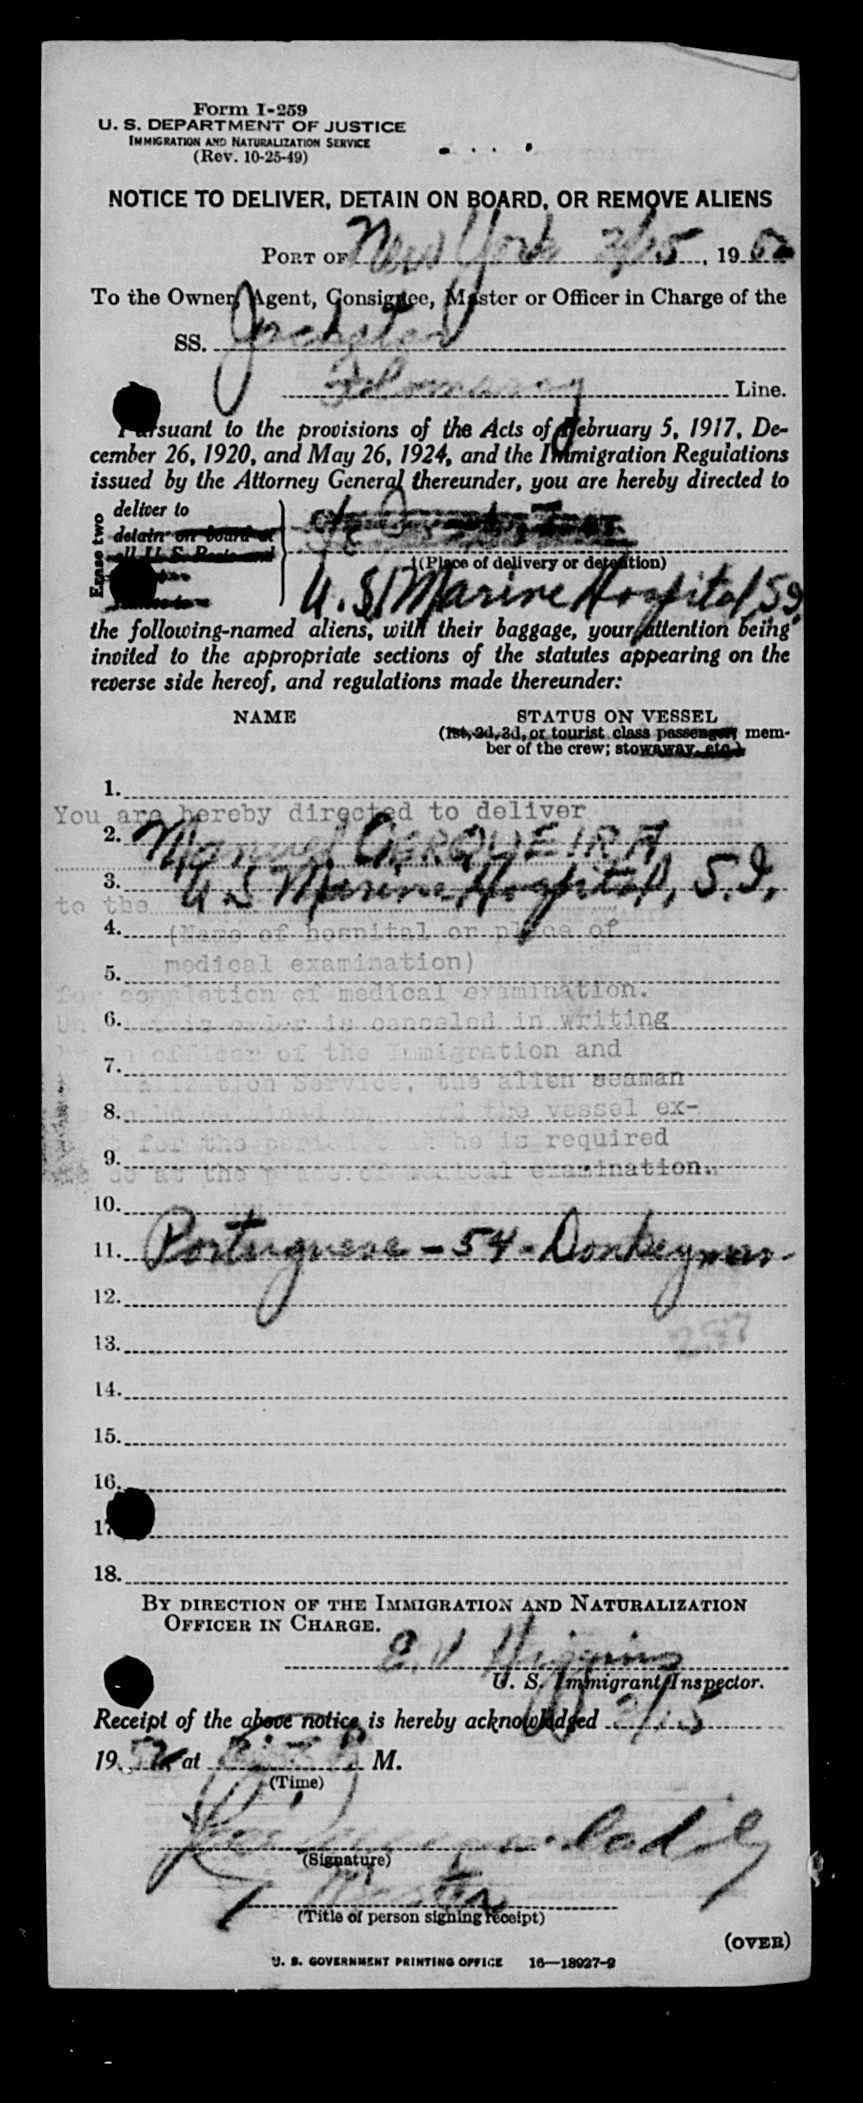 Form I-259
U. S. DEPARTMENT OF JUSTICE
IMMIGRATION AND NATURALIZATION SERVICE
(Rev. 10-25-49)
NOTICE TO DELIVER, DETAIN ON BOARD, OR REMOVE ALIENS
PORT OF New York 2/15, 1952
To the Owner, Agent, Consignee, Master or Officer in Charge of the
SS.
Line.
Pursuant to the provisions of the Acts of February 5, 1917, De-
cember 26, 1920, and May 26, 1924, and the Immigration Regulations
issued by the Attorney General thereunder, you are hereby directed to
Erase two
deliver to
detain on board at
all U. S. Ports and
(Place of delivery or detention)
U.S. Marine Hospital, SI,
the following-named aliens, with their baggage, your attention being
invited to the appropriate sections of the statutes appearing on the
reverse side hereof, and regulations made thereunder:
NAME STATUS ON VESSEL
(1st, 2d, 3d, or tourist class passenger, mem-
ber of the crew; stowaway, etc.)
1.
You are hereby directed to deliver
2. Manuel CERQUEIRA
3. U S Marine Hospital, S.I.
to the
4. (Name of hospital or place of
medical examination)
5.
for completion of medical examination.
6. Until this order is canceled in writing
officer of the Immigration and
7.
Naturalization Service, the alien seaman
8. detained on board the vessel ex-
for the period he is required
9.
to be at the place of medical examination.
10.
11. Portuguese - 54 - Donkeyman
12.
13. 257
14.
15.
16.
17.
18.
BY DIRECTION OF THE IMMIGRATION AND NATURALIZATION
OFFICER IN CHARGE.
Higgins
U. S. Immigrant Inspector.
Receipt of the above notice is hereby acknowledged 2/15
1952 at M.
(Time)
(Signature)
Master
(Title of person signing receipt)
(OVER)
U. S. GOVERNMENT PRINTING OFFICE 16—18927-2